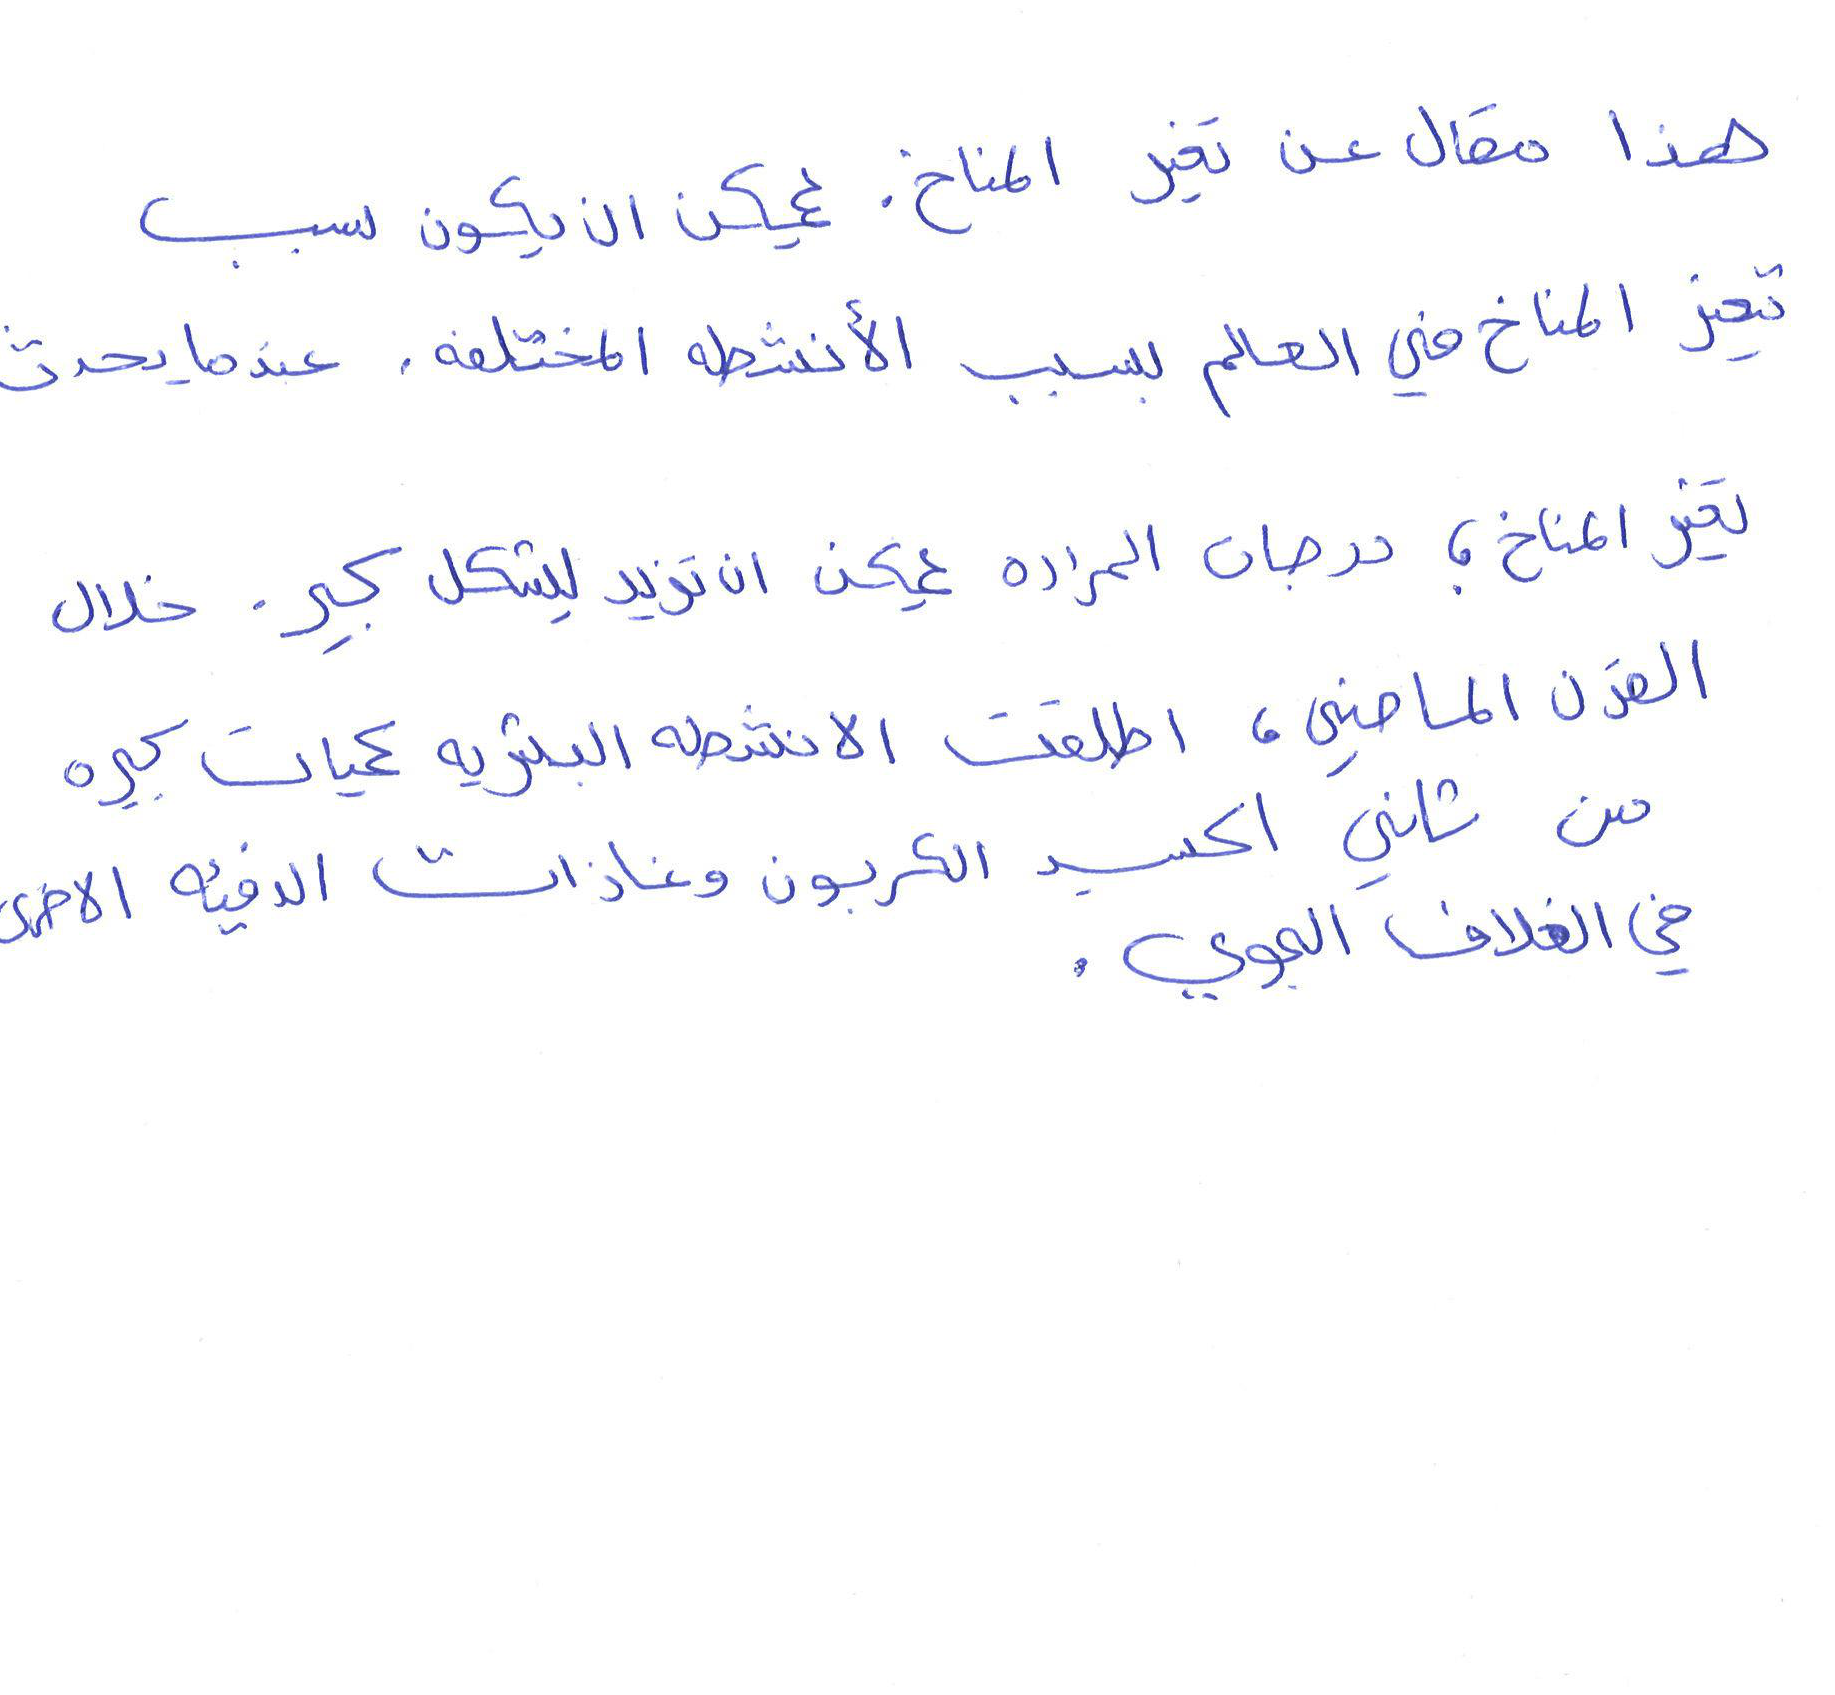 هذا مقال عن تغير المناخ. يمكن ان يكون سبب
تغير المناخ في العالم بسبب الأنشطه المختلفه. عندما يحدث
تغير المناخ، درجات الحراره يمكن ان تزيد بشكل كبير. خلال
القرن الماضي، اطلقت الانشطه البشريه كميات كبيره
من ثاني اكسيد الكربون وغازات الدفيئه الاخرى
في الغلاف الجوي.